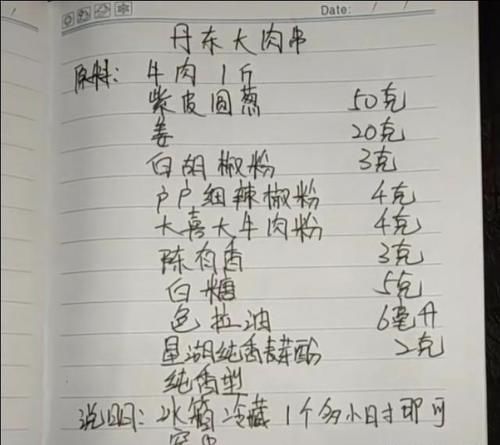 Date:
丹东大肉串
原料: 牛肉 1斤
紫皮圆葱 50克
姜 20克
白胡椒粉 3克
户户细辣椒粉 4克
大喜大牛肉粉 4克
陈有香 3克
白糖 5克
色拉油 6毫升
星湖纯香麦芽酚 2克
纯香型
说明: 冰箱冷藏1个多小时即可